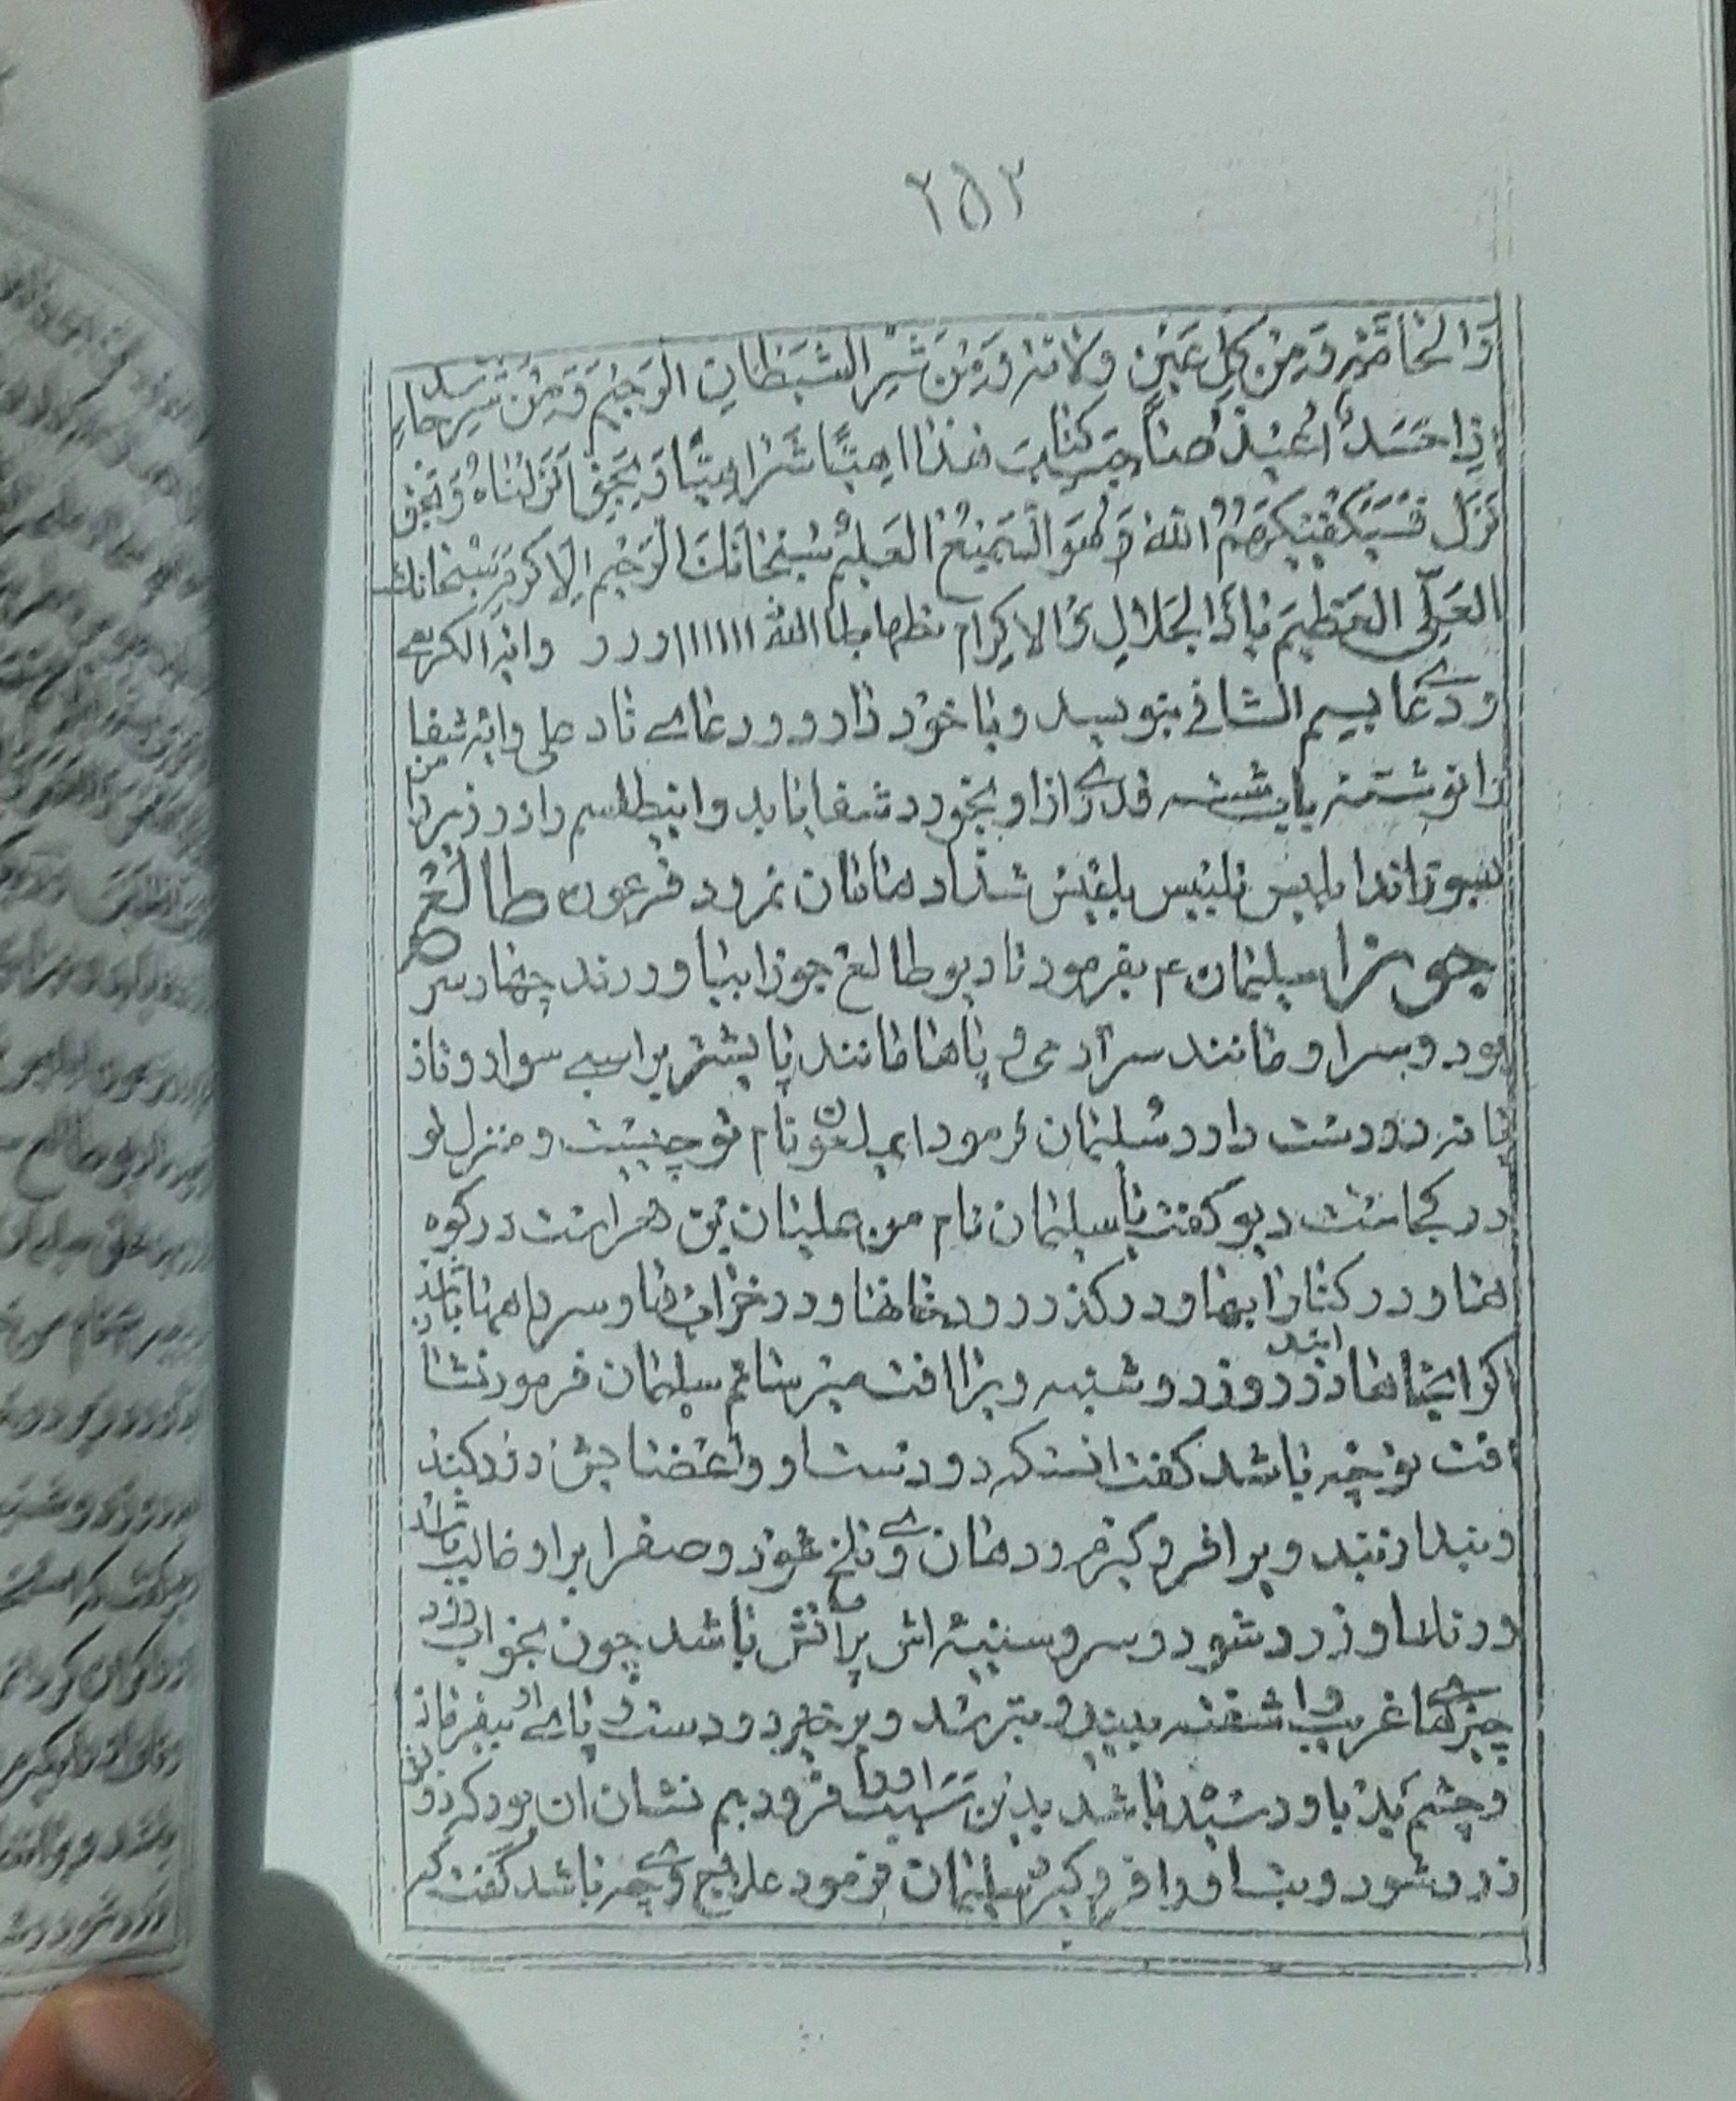 ۲۵۲
وَالخاصَّةِ وَمِن كُلِّ عَينٍ ولامّة وَمِن شَرِّ الشَّيطانِ الرَجيم وَمِن شَرِّ حاسد
اِذا حَسَدَ اُعيذُ صاحِب كتابت هذا اهيًّا شراهيًّا وَبِالحَقِّ اَنزَلناهُ وَبِالحَقِ
نَزَل فَسَيَكفيكَهُمُ اللهُ وَهُوَ السَّميعُ العَليمُ سُبحانَكَ الرَحيمُ الاكرم سُبحانك
العَلِيّ العَظيم ياذَا الجَلالِ وَالاكرام الله ااااااا ورر وايه الكرسى
ودعاى بسم الشافى بنويسد وبا خود دارد ودعاى ناد على وايه شفا
را نوشته باب شسته قدرى ازاو بخورد شفا يابد واينطلسم را در زير دامن
بسوزاند ابليس تلبيس بلقيس شداد هامان نمرود فرعون طالع
جوزا سليمان ع بفرمود تا ديو طالع جوزا بياوردند چهار سر
بود وسر او مانند سر آدمى و پاها مانند پا پشتر بر اسبى سوار و تاز
يانه در دست دارد سليمان فرمود اى ملعون نام تو چيست و منزل تو
در كجاست ديو گفت يا سليمان نام من هليان است در كوه
ها و در كنار ابها و در كذر رودخانها و در خرابها وسر راهها باشد
اكر اينجاها در روز دوشنبه ويرا افت ميرسانم سليمان فرمود نشا
افت تو چه باشد كفت انست كه در دست او واعضايش درد كند
وتب ويرا فرو كيرد و دهان وى تلخ شود و صفرا براو غالب باشد
ورنك او زرد شود و سر وسينه اش پر اتش باشد چون بخواب رود
چيزهاى غريب و اشفته بيند و بترسد و برخيزد و دست و پاى او بيفرمان
و چشم بد باو رسيده باشد بدين سبب او را فرود بم نشان ان بود كه روى
زرد شود و تب او را فرو كيرد سليمان فرمود علاج وى چه باشد كفت كه